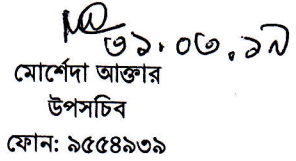 ৩১.০৩.১৯
মোর্শেদা আক্তার
উপসচিব
ফোন: ৯৫৫৪৯৩৯